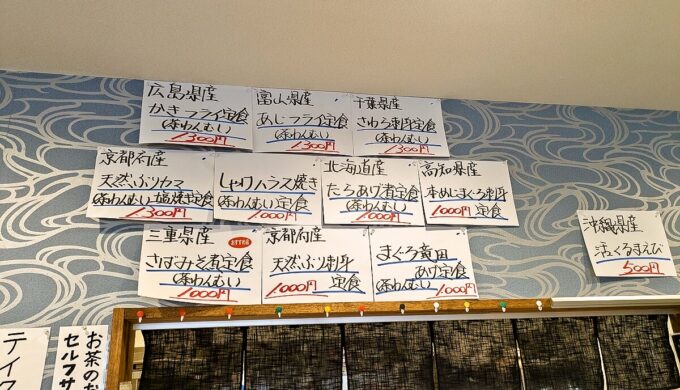 広島県産
かきフライ定食
(茶わんむし)
1300円
富山県産
あじフライ定食
(茶わんむし)
1300円
千葉県産
さわら刺身定食
(茶わんむし)
1300円
京都府産
天然ぶりカマ
(茶わんむし)塩焼き定食
1300円
しゃけハラス焼き
(茶わんむし)定食
1000円
北海道産
たらあげ煮定食
(茶わんむし)
1000円
高知県産
本めじまぐろ刺身
1000円 定食
三重県産
おすすめ品
さばみそ煮定食
(茶わんむし)
1000円
京都府産
天然ぶり刺身
定食
1000円
まぐろ竜田
あげ定食
(茶わんむし)
1000円
沖縄県産
活くるまえび
500円
テイク
お茶のお
セルフサ